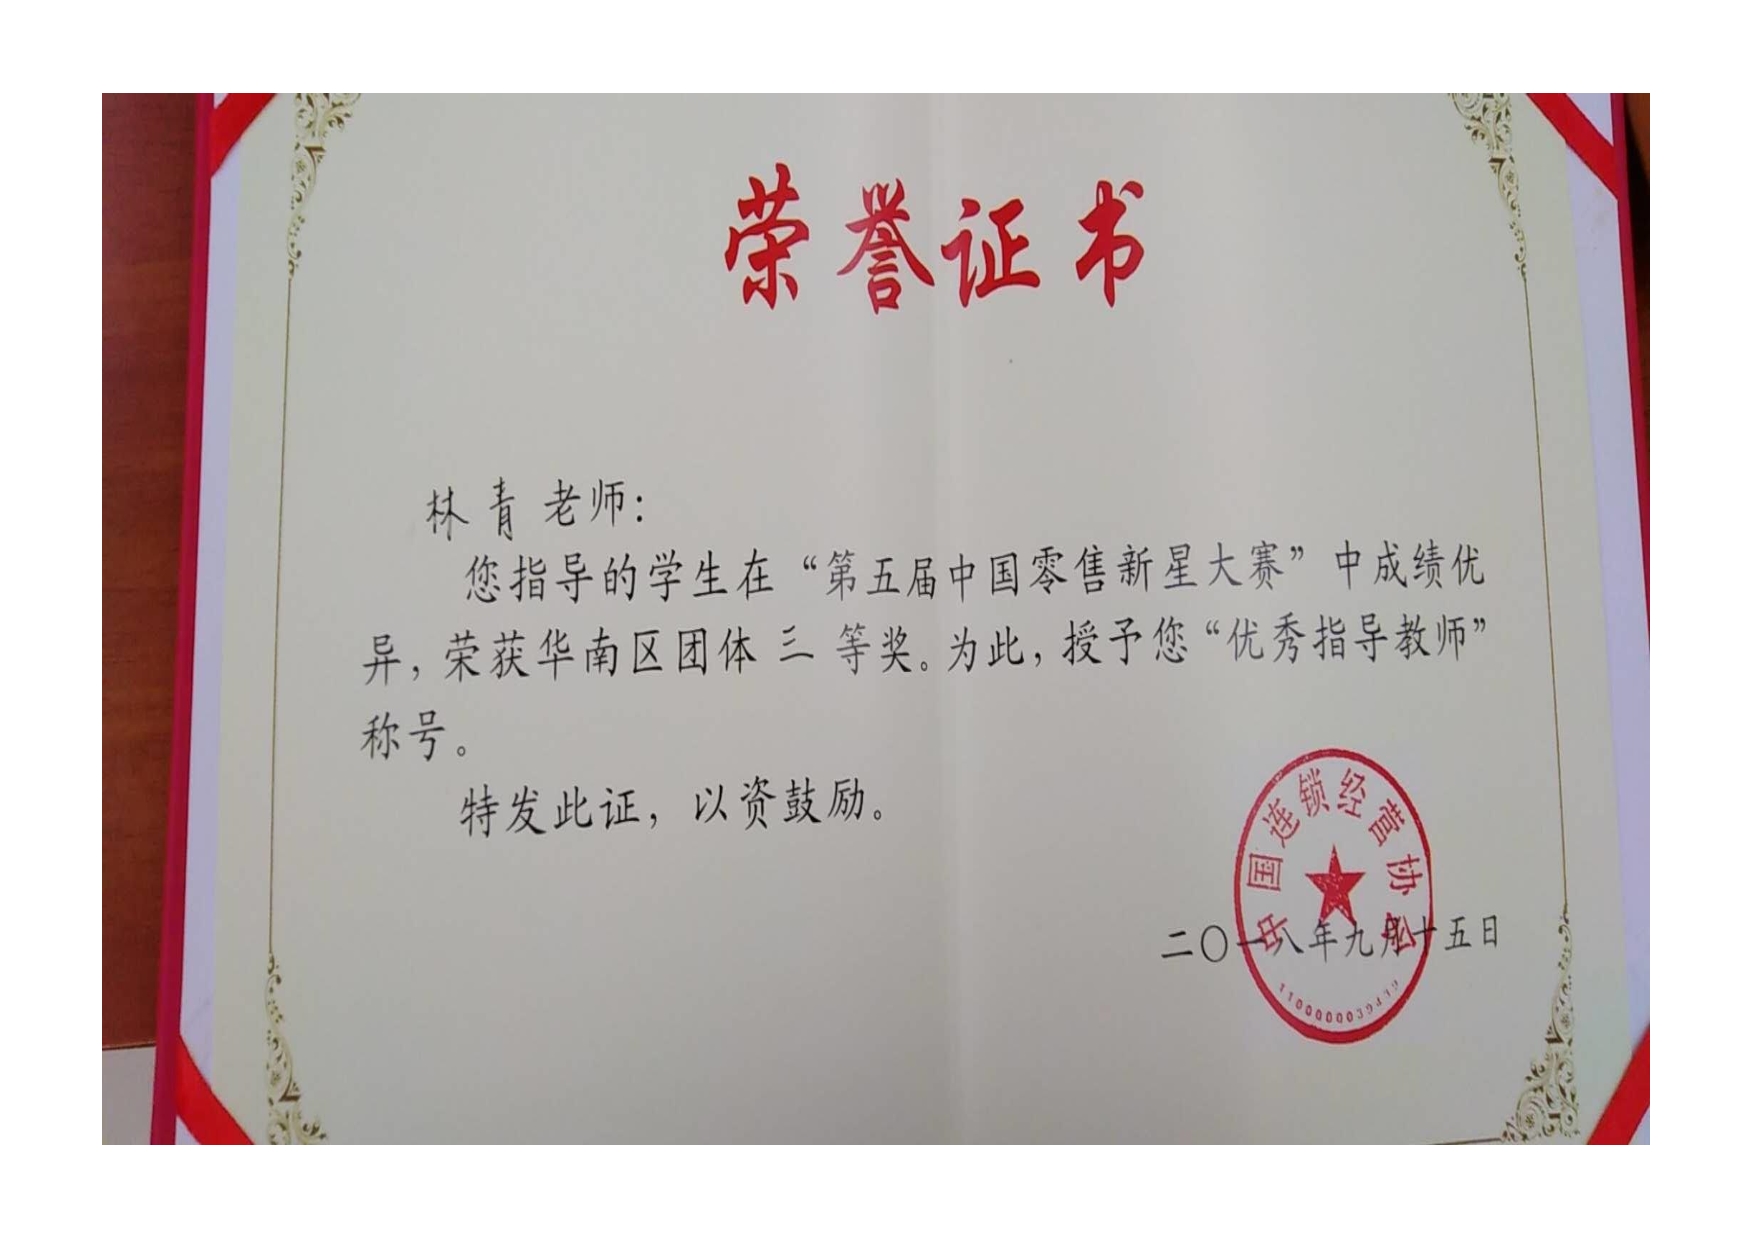 荣誉证书
林青 老师：
您指导的学生在“第五届中国零售新星大赛”中成绩优
异，荣获华南区团体 三 等奖。为此，授予您“优秀指导教师”
称号。
特发此证，以资鼓励。
中国连锁经营协会
二〇一八年九月十五日